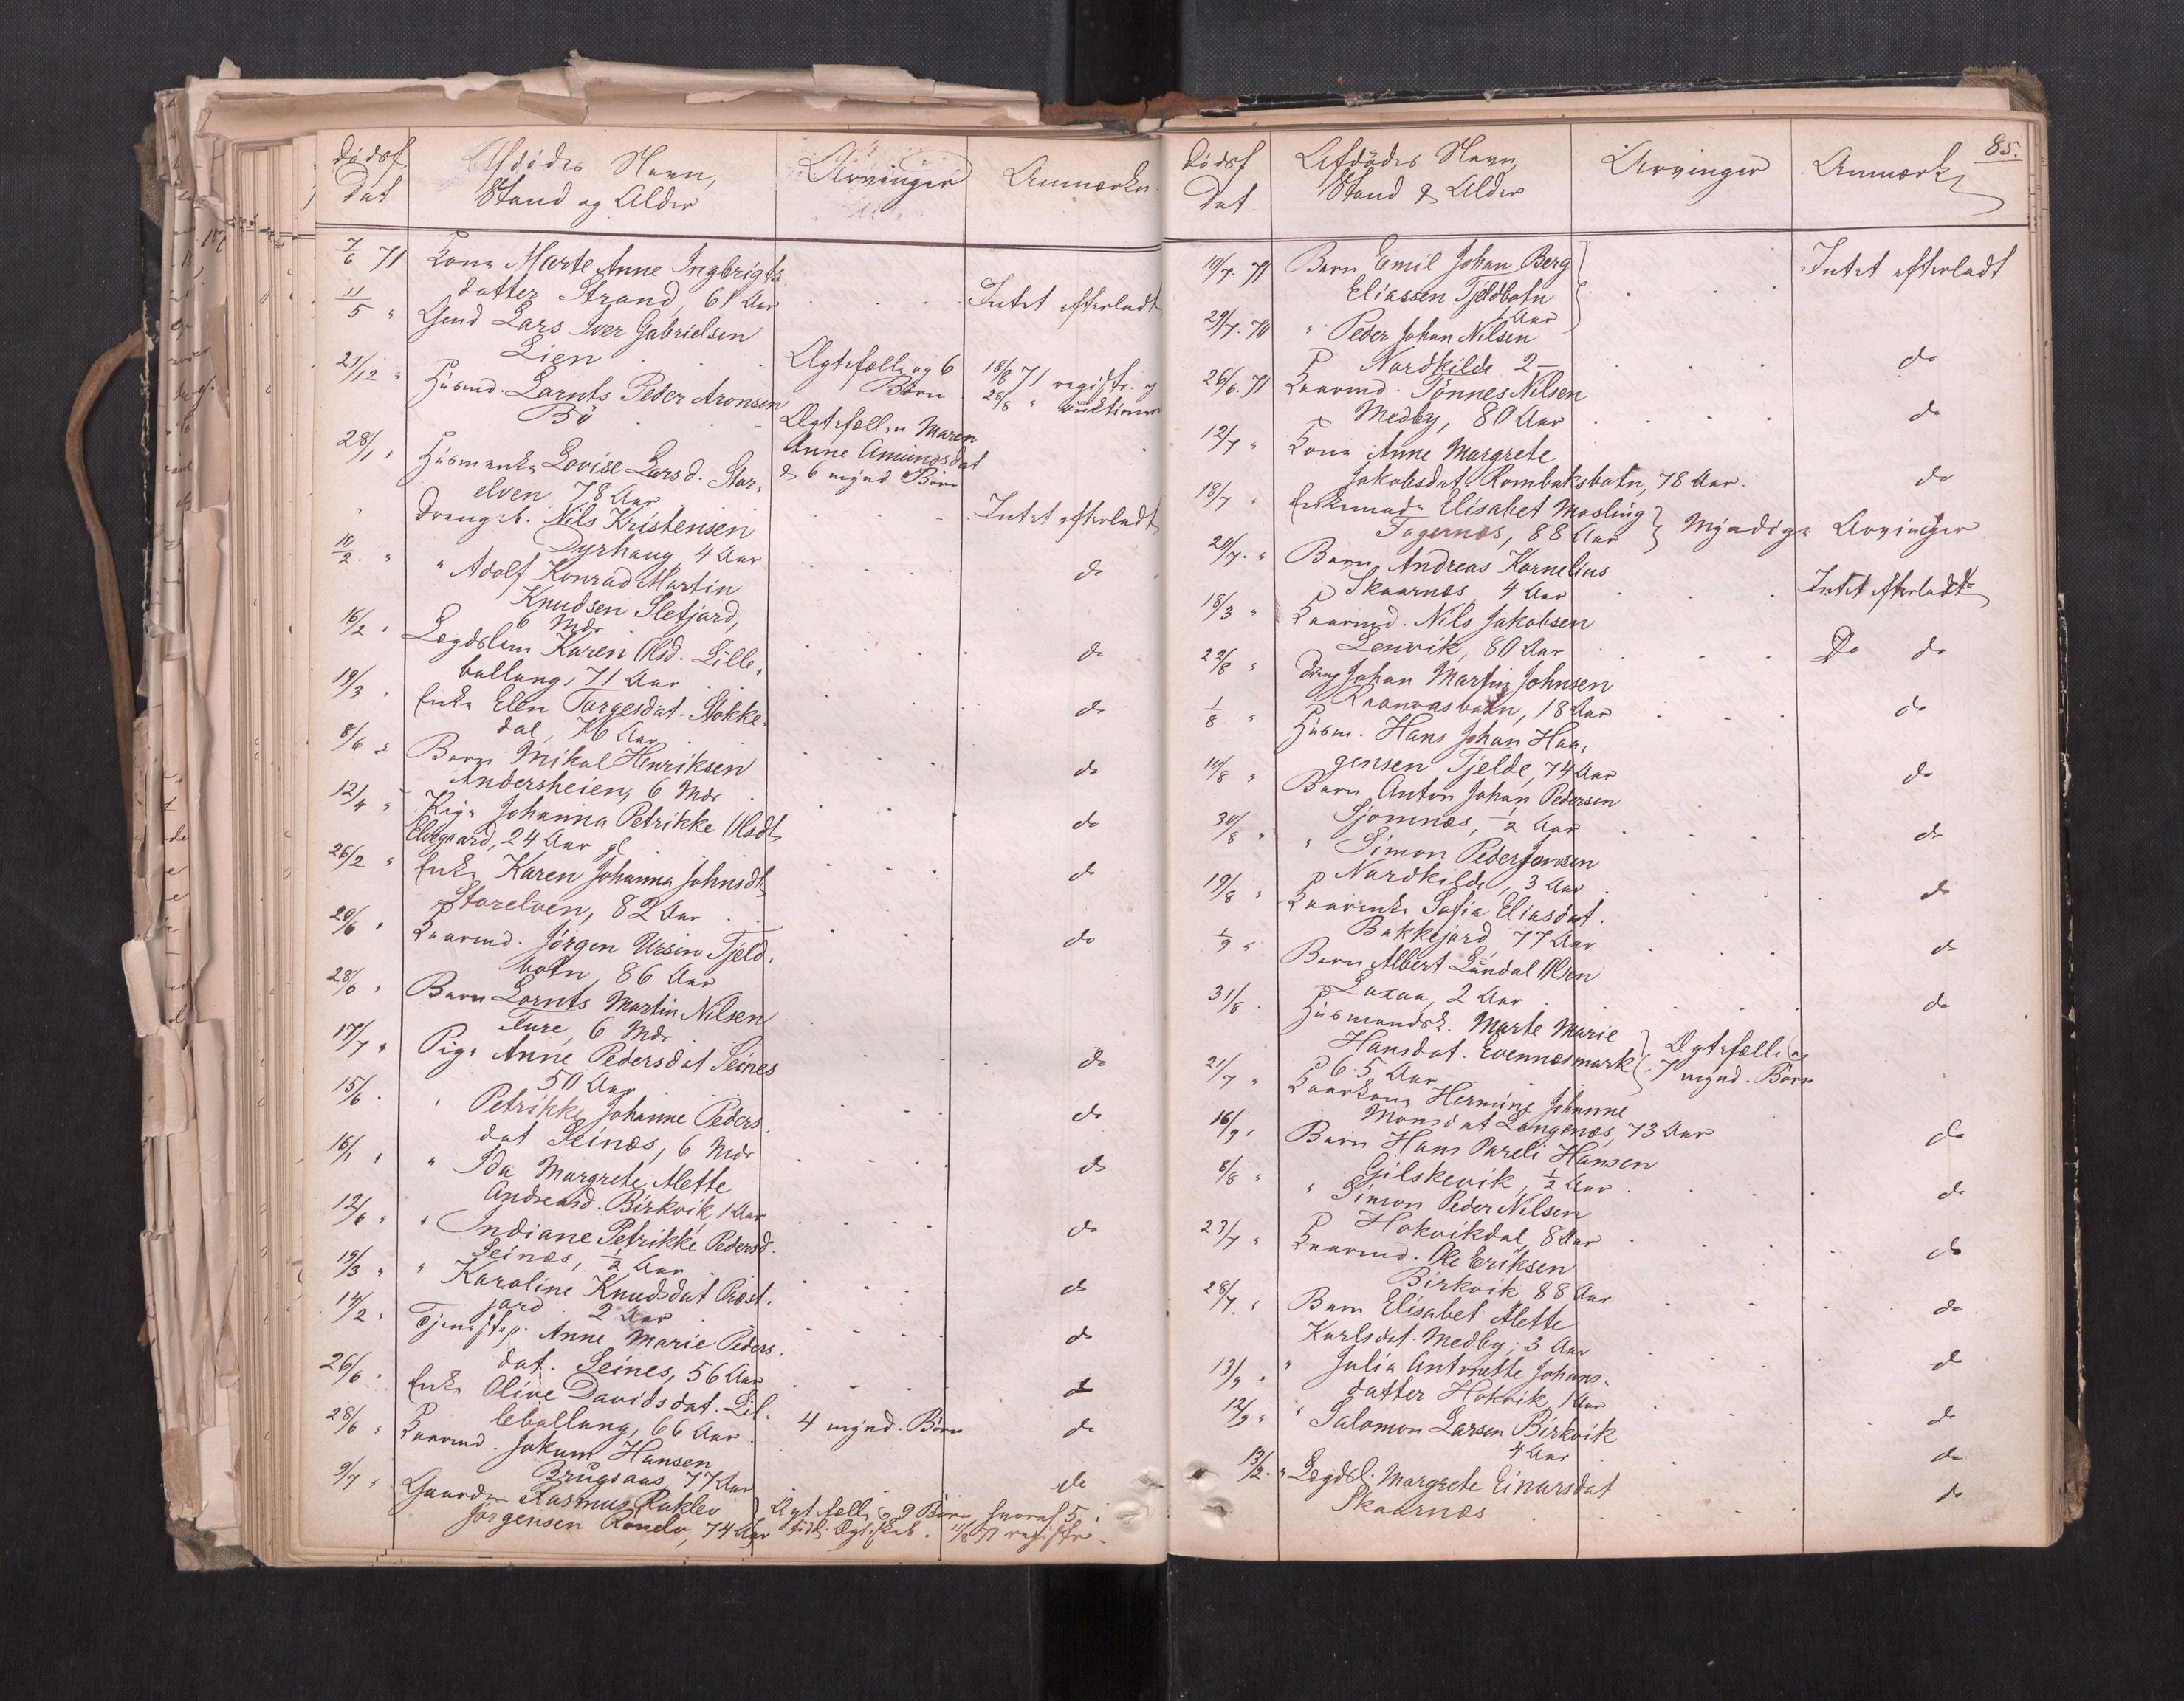 Dødsf
Dat
Afdødes Navn,
Stand og Alder
Arvinger
Anmærkn.
7/6 71 Kone Marte Anne Ingbrigts
datter Strand, 61 Aar . . . Intet efterladt
11/5 " Gmd Lars Iver Gabrielsen
Lien . . Ægtefælle og 6 Børn 18/8 71 registr. og
28/8 " auktioner
21/12 " Husmd. Larnts Peder Aronsen
Bö . . Ægtefællen Maren
Anne Amundsdat
& 6 mynd Børn
28/1 " Husmenke Lovise Larsd. Stor-
elven, 78 Aar . . . Intet efterladt
" Drengeb. Nils Kristensen
Dyrhaug 4 Aar . . . do
10/2 " " Adolf Konrad Martin
Knudsen Slefjord,
6 Mdr . . . do
16/2 " Lægdslem Karen Olsd. Lille-
ballang, 71 Aar . . . do
19/3 " Enke Elen Torgesdat. Stokke-
dal, 76 Aar . . . do
8/6 " Barn Mikal Henriksen
Andersheien, 6 Mdr . . . do
12/4 " Pige Johanna Petrikke Olsdt
Elvegaard, 24 Aar gl . . . do
26/2 " Enke Karen Johanna Johnsdt
Storelven, 82 Aar . . . do
20/6 " Kaarmd. Jörgen Ursin Tjeld-
botn, 86 Aar
28/6 " Barn Lornts Martin Nilsen
Ture, 6 Mdr . . . do
17/7 " Pige Anne Pedersdat Seines
50 Aar . . . do
15/6 " " Petrikke Johanne Peders-
dat Seines, 6 Mdr . . . do
16/1 " " Ida Margrete Alette
Andreasd. Birkvik 1 Aar . . . do
12/6 " " Indiane Petrikke Pedersd.
Seines, 1/2 Aar . . . do
19/3 " " Karoline Knudsdat Præst-
jord 2 Aar . . . do
14/2 " Tjenestep. Anne Marie Peders-
dat. Seines, 56 Aar . . . do
26/6 " Enke Olive Davidsdat. Lil-
leballang, 66 Aar . 4 mynd. Børn do
28/6 " Kaarmd. Jakum Hansen
Brugsaas, 77 Aar do
9/7 " Gaardm Rasmus Rakler
Jörgensen Ranelv, 74 Aar } Ægtefælle & 9 Børn, hvoraf 5 i
tidl. Ægteskab. 11/8 71 registr.
85.
Dødsf
Dat.
Afdödes Navn,
Stand & Alder
Arvinger
Anmærk
10/7. 71 Barn Emil Johan Berg
Eliassen Tjeldbotn
1 Aar } . . . Intet efterladt
29/7. 70 " Peder Johan Nilsen
Nordkilde 2 — . . . do
26/6. 71 Kaarmd. Tönnes Nilsen
Medby, 80 Aar . . . . do
12/7 " Kone Anne Margrete
Jakobsdat. Rombaksbotn, 78 Aar. do
18/7 " Enkemadm Elisabet Mosling
Fagernæs, 88 Aar } Myndige Arvinger
20/7. " Barn Andreas Kornelius
Skaarnæs, 4 Aar . . . Intet efterladt
18/3 " Kaarmd. Nils Jakobsen
Lenvik, 80 Aar . . . Do do
22/8 " Dreng Johan Martin Johnsen
Raanvasbotn, 18 Aar . . . do
1/8 " Husm. Hans Johan Haa-
gensen Tjelde, 74 Aar . . do
10/8 " Barn Anton Johan Pedersen
Sjomnæs, 1/2 Aar . . . do
30/8 " " Simon Peder Jensen
Nordkilde, 3 Aar . . . do
19/8 " Kaarenke Sofia Eliasdat.
Bakkejord 77 Aar . . . do
1/9 " Barn Albert Lündal Olsen
Laxaa, 2 Aar . . . do
31/8. Husmandsk. Marte Marie
Hansdat. Evennæsmark
65 Aar } Ægtefælle og
7 mynd. Börn
21/7 " Kaarkone Hermine Johanne
Monsdat Langenæs, 73 Aar . do
16/9 " Barn Hans Pareli Hansen
Gilskevik, 1/2 Aar . . . do
8/8 " " Simon Peder Nilsen
Hokvikdal, 8 Aar . . . do
23/7 " Kaarmd. Ole Eriksen
Birkvik 88 Aar . . . do
28/7. " Barn Elisabet Alette
Karlsdat. Medby, 3 Aar . . . do
13/9 " " Julia Antonette Johans-
datter Hokvik, 1 Aar . . . do
12/9 " " Salomon Larsen Birkvik
4 Aar . . . do
13/2. " Lægdsl. Margrete Einarsdat
Skaarnæs . . . . do